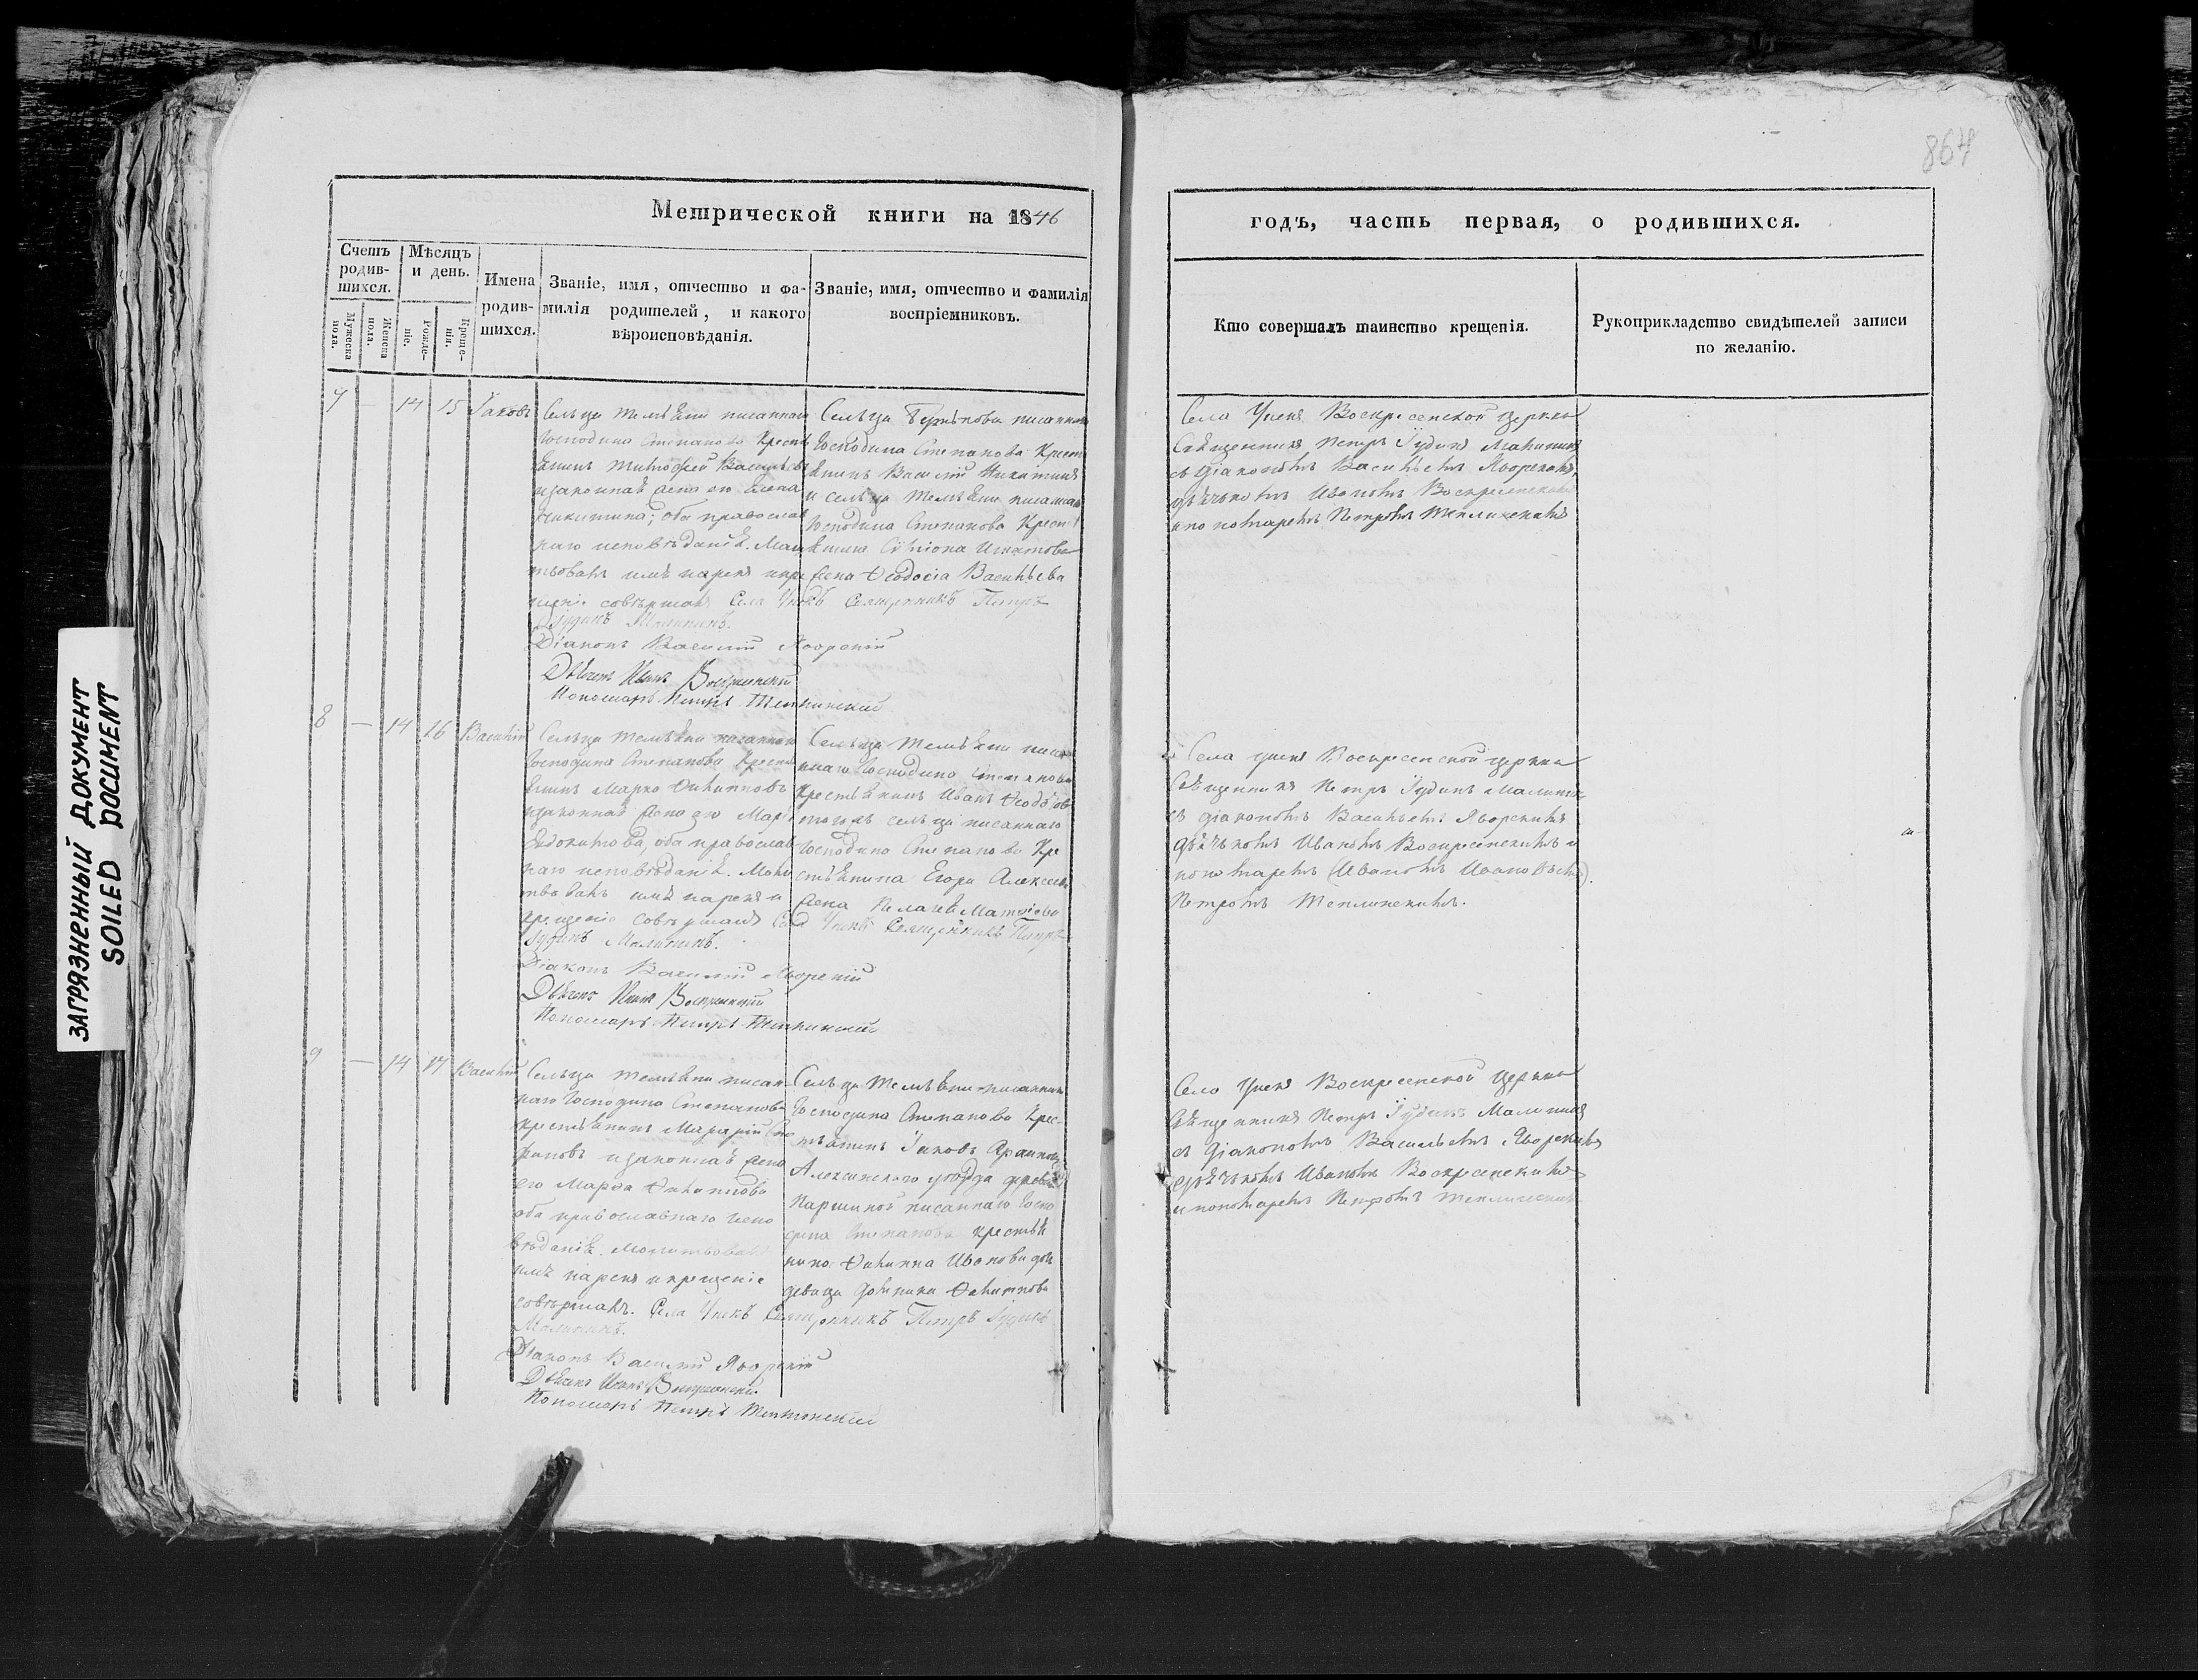 864
Метрической книги на 1846
годъ, часть первая, о родившихся.
Счетъ родив-шихся.
Мѣсяцъ и день.
Имена родив-шихся.
Званіе, имя, отчество и фа-милія родителей, и какого вѣроисповѣданія.
Званіе, имя, отчество и фамилія воспріемниковъ.
Мужеска пола.
Женска пола.
Рожде-ніе.
Креще-нія.
Кто совершалъ таинство крещенія.
Рукоприкладство свидѣтелей записи
по желанію.
7 — 14 15 Іаковъ
Сельца писаннаго
Господина Степанова Кресть
янинъ Тимофей Васильевъ
изаконная жена его Елена
Никитина; обa православ
наго исповѣданія. Моли
твовалъ имя нарекъ икре
щеніе совершалъ Села Священникъ Петръ
Іудинъ Малининъ.
Діаконъ Василій Яворскій
Дьячекъ Иванъ Воскресенскій
Пономарь Петръ
Сельца писаннаго
Господина Степанова Крест
янинъ Василій Никитинъ
и сельца писаннаго
Господина Степанова Крест
янина Симіона Игнатова
жена Ѳеодосія Васильева
Села Воскресенской церкви
Священникъ Петръ Іудинъ Малининъ
съ діакономъ Васильемъ Яворскимъ,
дьячькомъ Иваномъ Воскресенскимъ
и пономаремъ Петромъ
8 — 14 16 Василій
Сельца писаннаго
Господина Степанова Кресть
янинъ Марко Филипповъ
изаконная жена его
Евдокимова, оба православ
наго исповѣданія. Моли
твовалъ имя нарекъ и
крещеніе совершалъ Села Священникъ Петръ
Іудинъ Малининъ.
Діаконъ Василій Яворскій
Дьячекъ Иванъ Воскресенскій
Пономарь Петръ
Сельца писан
наго Господина Степанова
Крестьянинъ Иванъ
тогожъ сельца писаннаго
Господина Степанова Кре
стьянина Егора Алексеева
жена Пелагея Матвіева
Села Воскресенской церкви
Священникъ Петръ Іудинъ Малининъ
съ діакономъ Васильемъ Яворскимъ
дьячькомъ Иваномъ Воскресенскимъ и
пономаремъ (Иваномъ Ивановымъ).
Петромъ
9 — 14 17 Василій
Сельца писан
наго Господина Степанова
крестьянинъ
изаконная жена
его Марѳа Филиппова
оба православнаго испо
вѣданія. Молитвовалъ
имя нарекъ и крещеніе
совершалъ. Села Священникъ Петръ Іудинъ
Малининъ.
Діаконъ Василій Яворскій
Дьячекъ Иванъ Воскресенскій
Пономарь Петръ
Сельца писаннаго
Господина Степанова Крес-
тьянинъ Іаковъ
Алексинскаго уѣзда деревни
писаннаго Госпо
дина Степанова крестья
нина Филиппа Иванова дочь
девица Филиппова
Села Воскресенской Церкви
Священникъ Петръ Іудинъ Малининъ
съ діакономъ Васильемъ Яворскимъ
дьячькомъ Иваномъ Воскресенскимъ
и пономаремъ Петромъ
ЗАГРЯЗНЕННЫЙ ДОКУМЕНТ
SOILED DOCUMENT